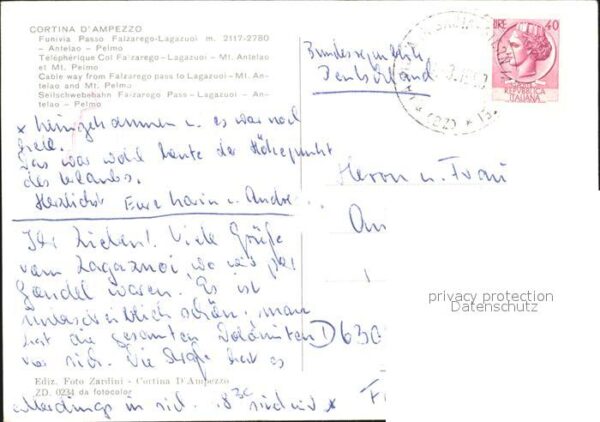 CORTINA D'AMPEZZO
Funivia Passo Falzarego-Lagazuoi m. 2117-2780
- Antelao - Pelmo
Téléphérique Col Falzarego-Lagazuoi - Mt. Antelao
et Mt. Pelmo
Cable way from Falzarego pass to Lagazuoi - Mt. An-
telao and Mt. Pelmo
Seitschwebebahn Falzarego Pass - Lagazuoi - An-
telao - Pelmo
* heimgekommen u. es war noch
Das war wohl heute der Höhepunkt
des Urlaubs.
Herzlichst Eure Karin u. Andre
Ihr Lieben! Viele Grüße
vom Lagazuoi wo wir per
Gondel waren. Es ist
unbeschreiblich schön, man
hat die gesamten Dolomiten
vor sich. Die Straße hat es
allerdings in sich.
Ediz. Foto Zardini - Cortina D'Ampezzo
ZD. 0234 da fotocolor
Bundesrepublik
Deutschland
LIRE 40
REPVBBLICA
ITALIANA
Herrn u. Frau
An
D 630
F
privacy protection
Datenschutz